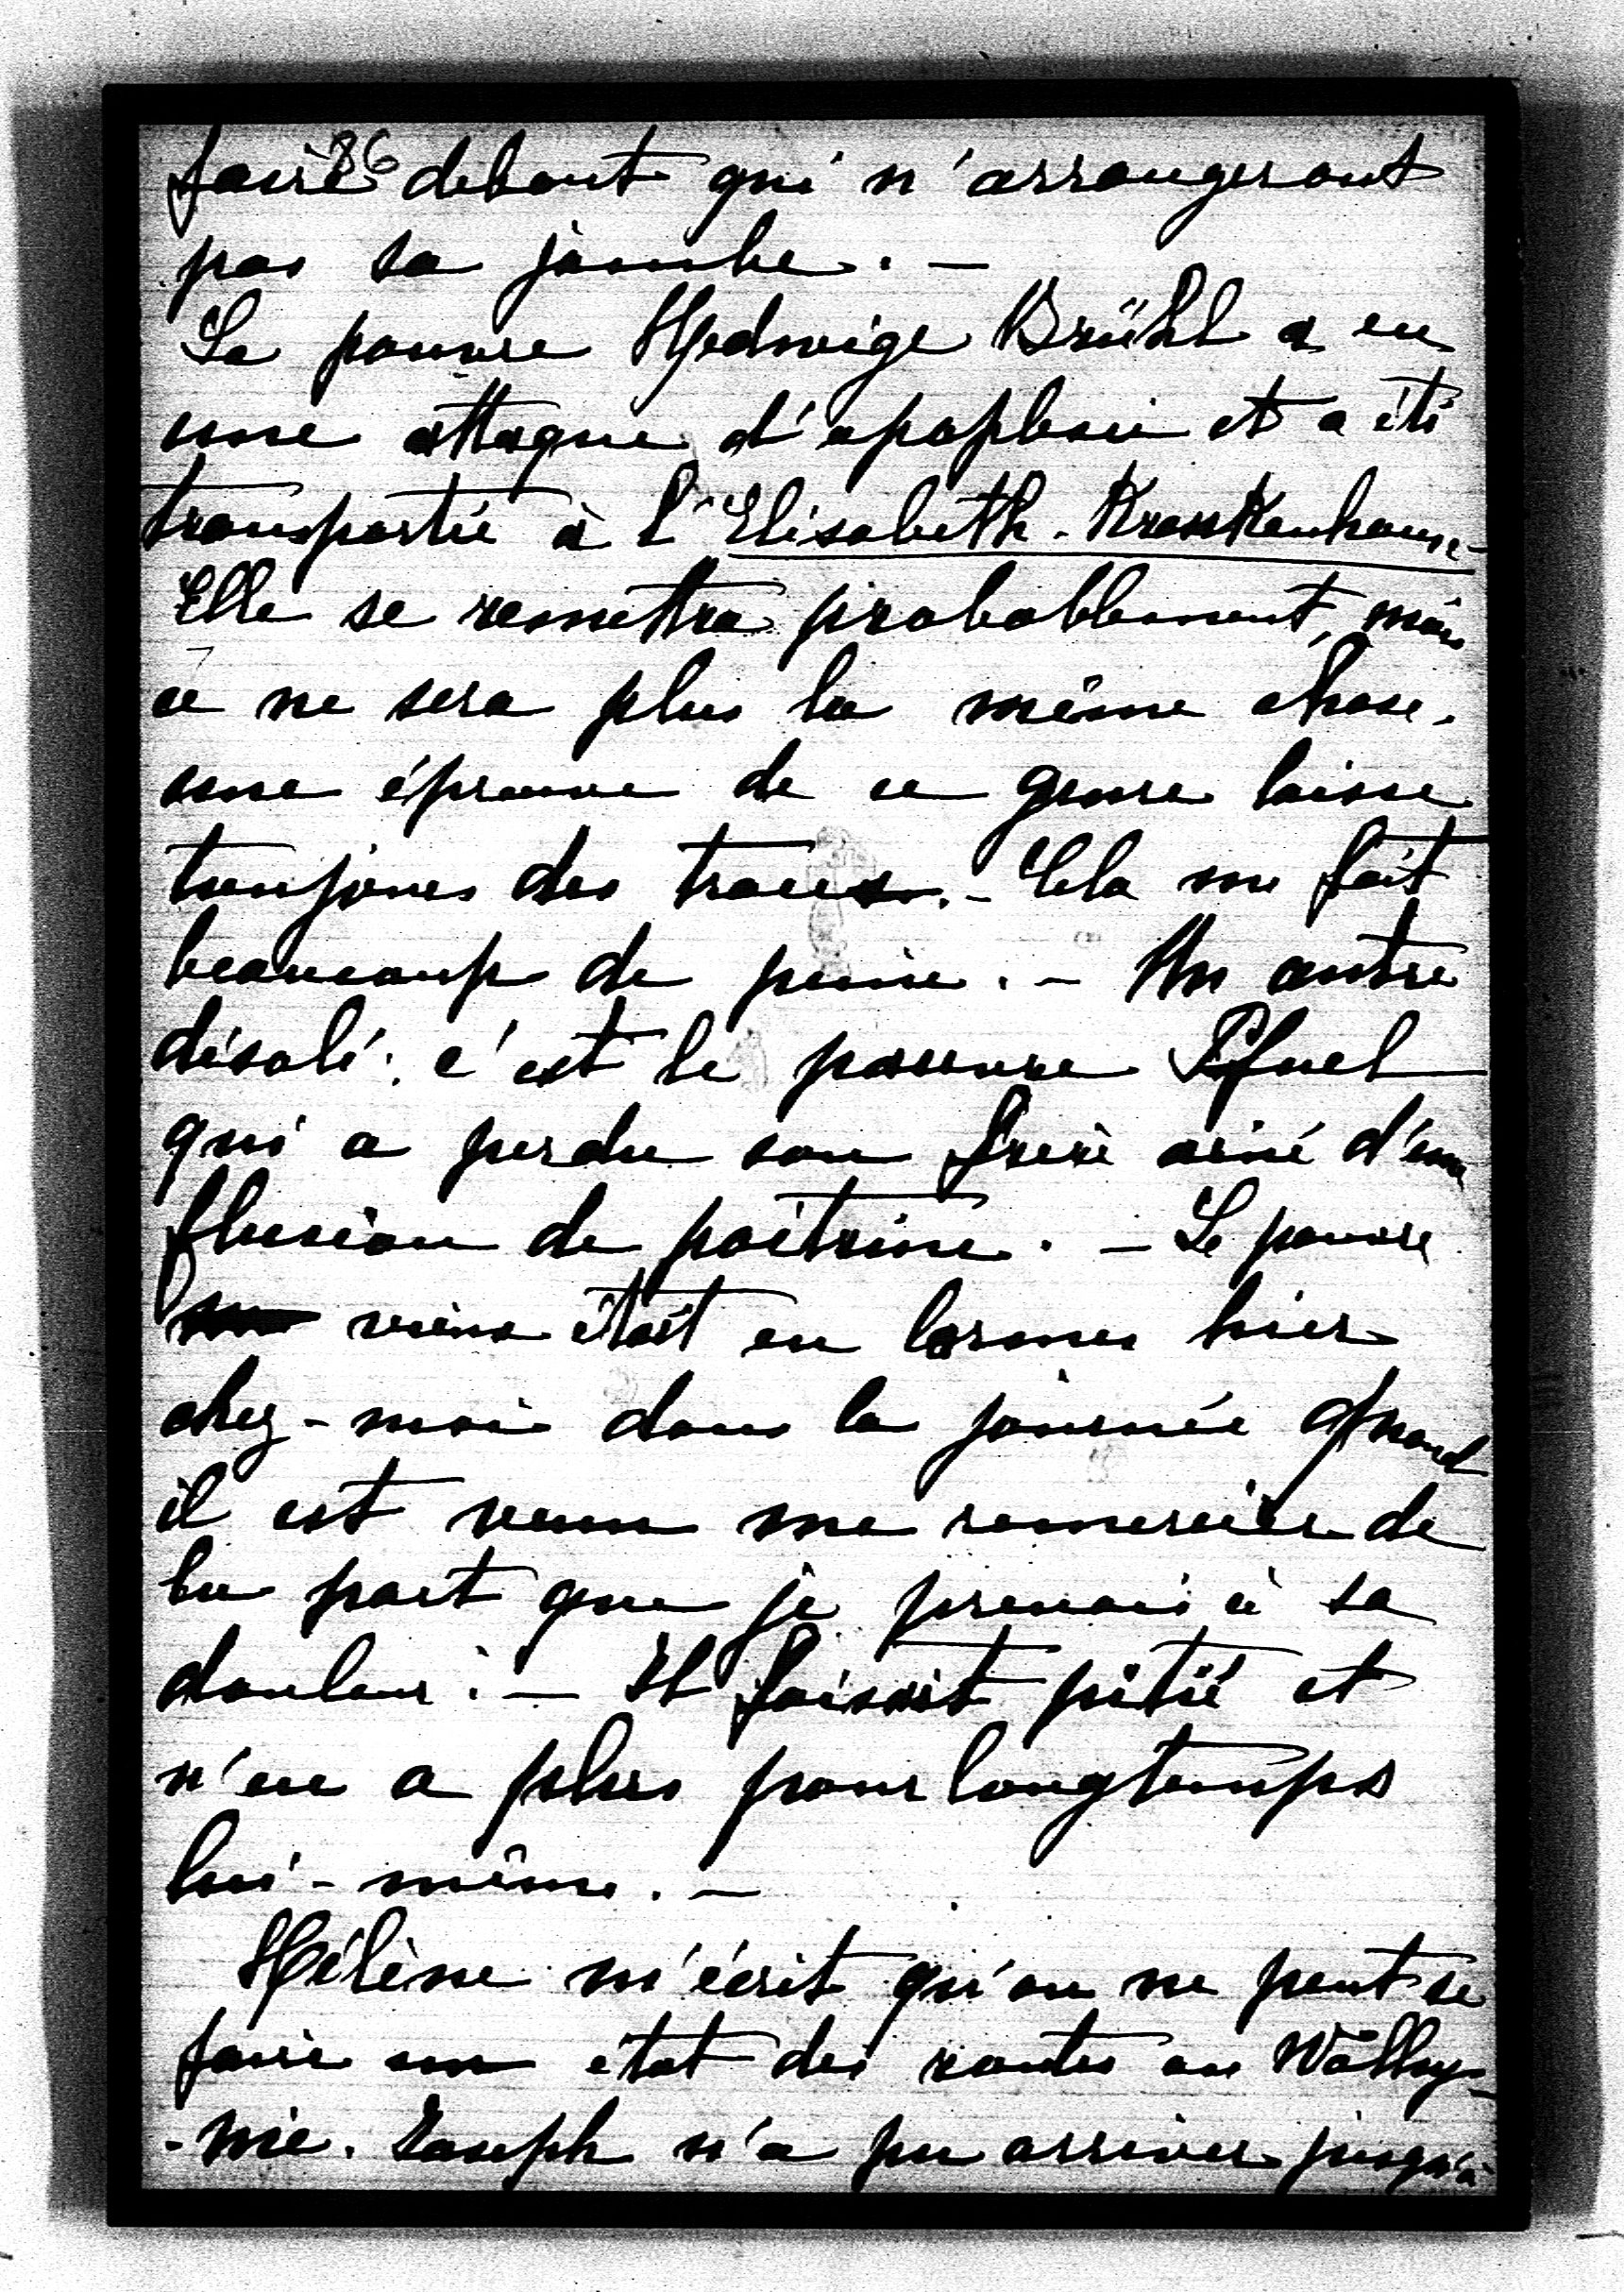 86
faire debout qui n'arrangeront
pas sa jambe. —
La pauvre Hedwige Brühl a eu
une attaque d'apoplexie et a été
transportée à l'Elisabeth-Krankenhaus.
Elle se remettra probablement, mais
ce ne sera plus la même chose.
une épreuve de ce genre laisse
toujours des traces. – Cela me fait
beaucoup de peine. – Un autre
désolé: c'est le pauvre Pfuel
qui a perdu son frère ainé d'une
flusion de poitrine. – Le pauvre
vieux était en larmes hier
chez-moi dans la journée quand
il est venu me remercier de
la part que je prenais à sa
douleur. – Il faisait pitié et
n'en a plus pour longtemps
lui-même. –
Hélène m'écrit qu'on ne peut se
faire un état des routes en Wolhy-
-nie. Joseph n'a pu arriver jusqu'à